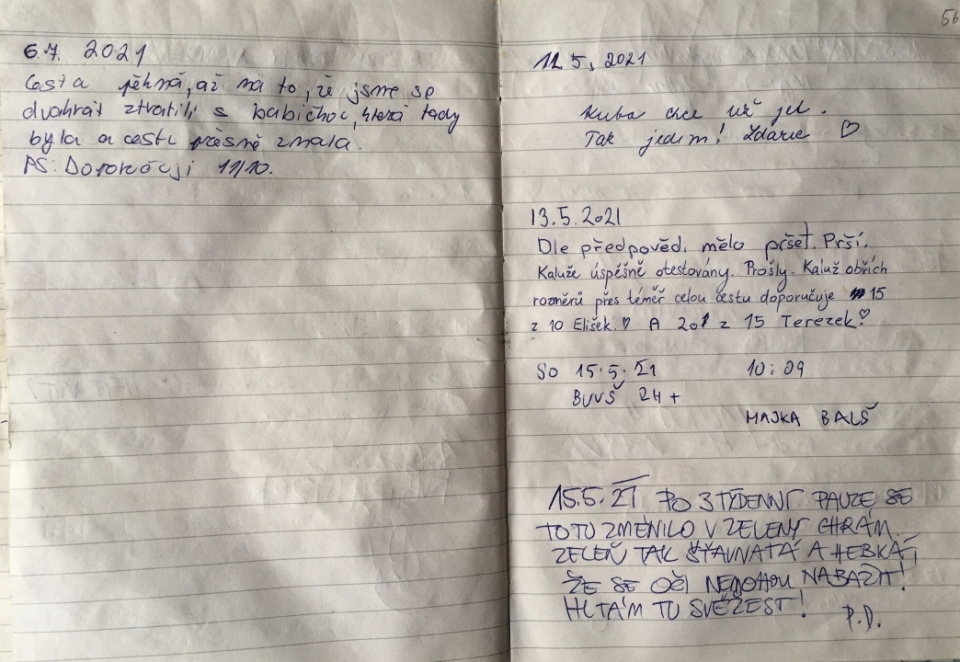 6.7. 2021
Cesta pěkná, až na to, že jsme se
dvakrát ztratili s babičkou, která tady
byla a cestu přesně znala.
PS: Doporučuji 11/10.
56
11.5, 2021
Kuba chce už jet.
Tak jedem! Zdarec ♡
13.5.2021
Dle předpovědi mělo pršet. Prší.
Kaluže úspěšně otestovány. Prošly. Kaluž obřích
rozměrů přes téměř celou cestu doporučuje 15
z 10 Elišek.♡ A 20 z 15 Terezek!♡
So 15.5.21 10:09
BUVŠ 24+
MAJKA BALŠ
15.5.21 PO 3 TÝDENNÍ PAUZE SE
TOTO ZMĚNILO V ZELENÝ CHRÁM.
ZELEŇ TAK ŠŤAVNATÁ A HEBKÁ,
ŽE SE OČI NEMOHOU NABAŽIT!
HLTÁM TU SVĚŽEST!
P.D.